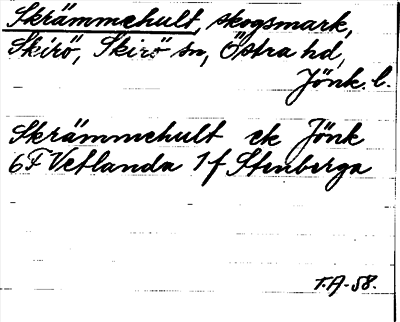 Skrämmehult, skogsmark,
Skirö, Skirö sn, Östra hd,
Jönk. l.
Skrämmehult ek Jönk
6F Vetlanda 1f Stenberga
T.A-58.